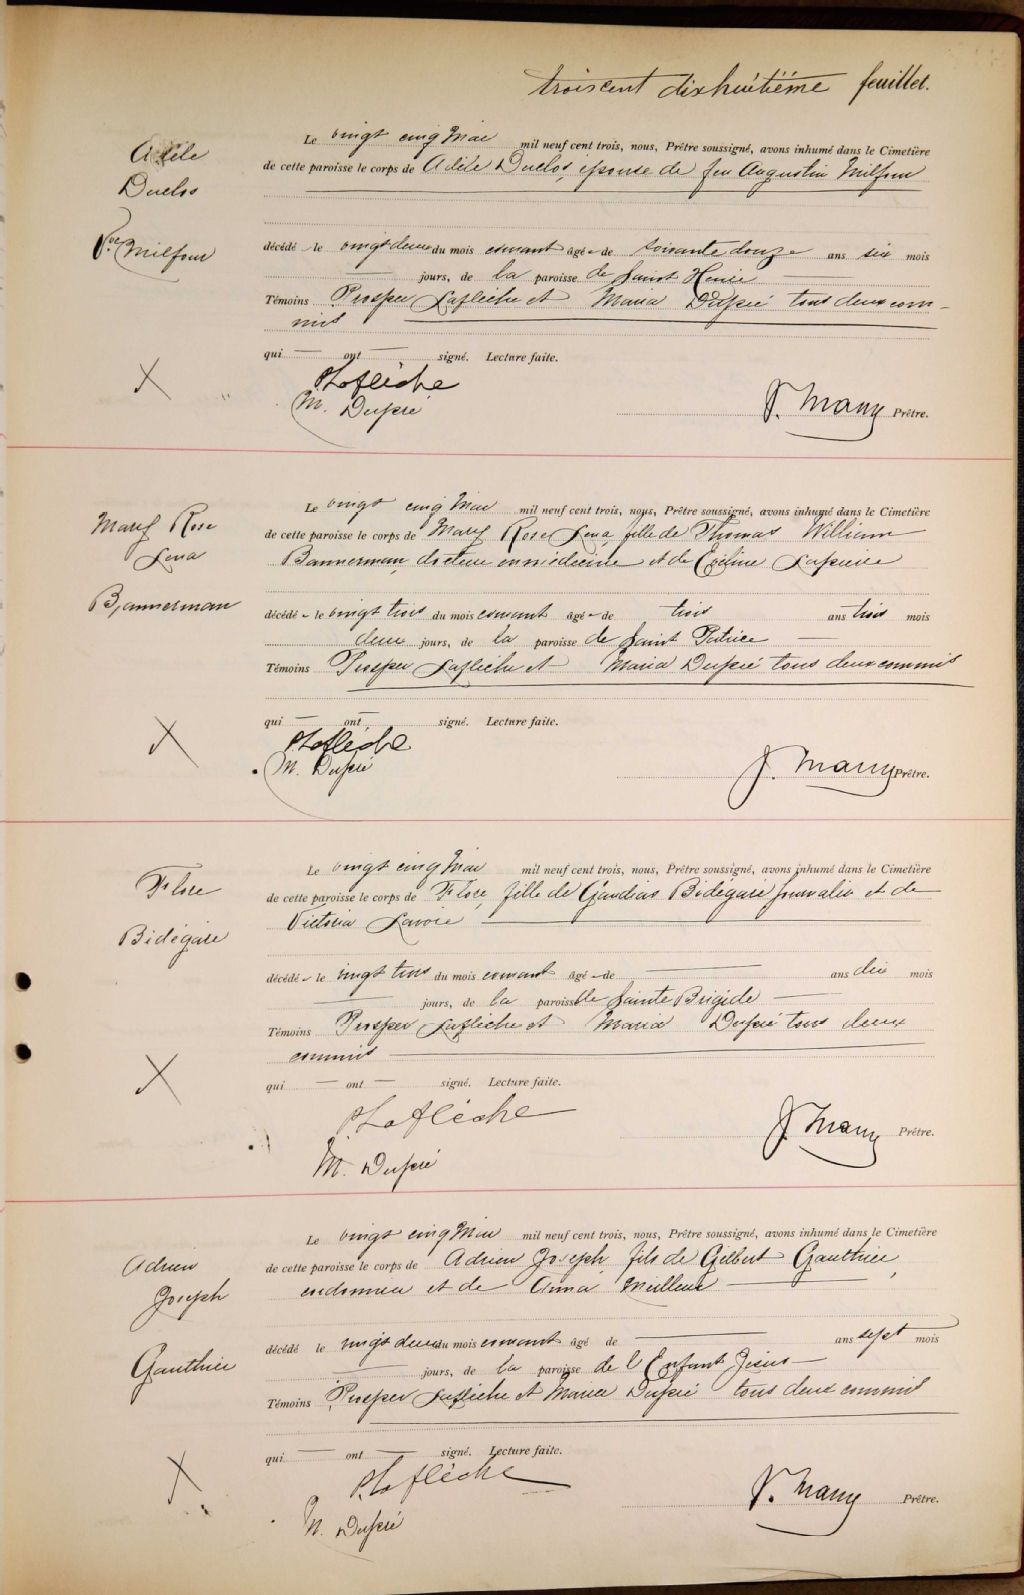 troiscent dixhuitième feuillet.
Adèle
Duclos
Vve Milfour
Le vingt cinq Mai mil neuf cent trois, nous, Prêtre soussigné, avons inhumé dans le Cimetière
de cette paroisse le corps de Adèle Duclos, épouse de feu Augustin Milfour
décédé e le vingt deux du mois courant âgé e de soixante douze ans six mois
— jours, de la paroisse de Saint Henri —
Témoins Prosper Laflèche et Maria Dupré tous deux com-
mis
qui — ont — signé. Lecture faite.
P Laflèche
M. Dupré
J. Many Prêtre.
Mary Rose
Lena
Bannerman
Le vingt cinq Mai mil neuf cent trois, nous, Prêtre soussigné, avons inhumé dans le Cimetière
de cette paroisse le corps de Mary Rose Lena, fille de Thomas William
Bannerman, docteur en médecine et de Lapierre
décédé e le vingt trois du mois courant âgé e de trois ans trois mois
deux jours, de la paroisse de Saint Patrice —
Témoins Prosper Laflèche et Maria Dupré tous deux commis
qui — ont — signé. Lecture faite.
P Laflèche
M. Dupré
J. Many Prêtre.
Flore
Bidégaré
Le vingt cinq Mai mil neuf cent trois, nous, Prêtre soussigné, avons inhumé dans le Cimetière
de cette paroisse le corps de Flore, fille de Gaudias Bidégaré journalier et de
Victoria Lavoie
décédé e le vingt trois du mois courant âgé e de — ans dix mois
— jours, de la paroisse de Sainte Brigide —
Témoins Prosper Laflèche et Maria Dupré tous deux
commis
qui — ont — signé. Lecture faite.
P Laflèche
M. Dupré
J. Many Prêtre.
Adrien
Joseph
Gauthier
Le vingt cinq Mai mil neuf cent trois, nous, Prêtre soussigné, avons inhumé dans le Cimetière
de cette paroisse le corps de Adrien Joseph fils de Gilbert Gauthier,
cordonnier et de Anna Meilleur
décédé le vingt deux du mois courant âgé de — ans sept mois
— jours, de la paroisse de l'Enfant Jésus —
Témoins Prosper Laflèche et Maria Dupré tous deux commis
qui — ont — signé. Lecture faite.
P. Laflèche
M. Dupré
J. Many Prêtre.